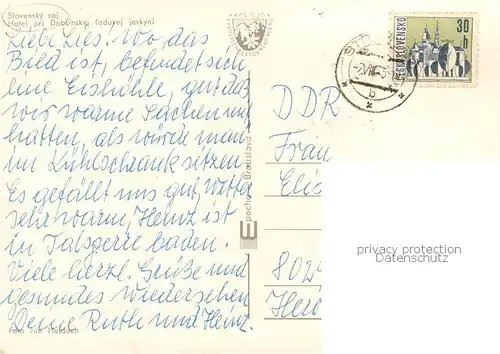 Slovenský raj
Hotel pri Dobšinskej ľadovej jaskyni
Liebe Lies! Wo, das
Bild ist, befindet sich
eine Eishöhle, gut daß
wir warme Sachen mit
hatten, als würde man
im Kühlschrank sitzen.
Es gefällt uns gut, Wetter
sehr warm, Heinz ist
in Talsperre baden.
Viele herzl. Grüße und
gesundes Wiedersehen
Deine Ruth und Heinz.
Foto Ján
Bratislava
30 h
ČESKOSLOVENSKO
6
DDR
Frau
8024
privacy protection
Datenschutz